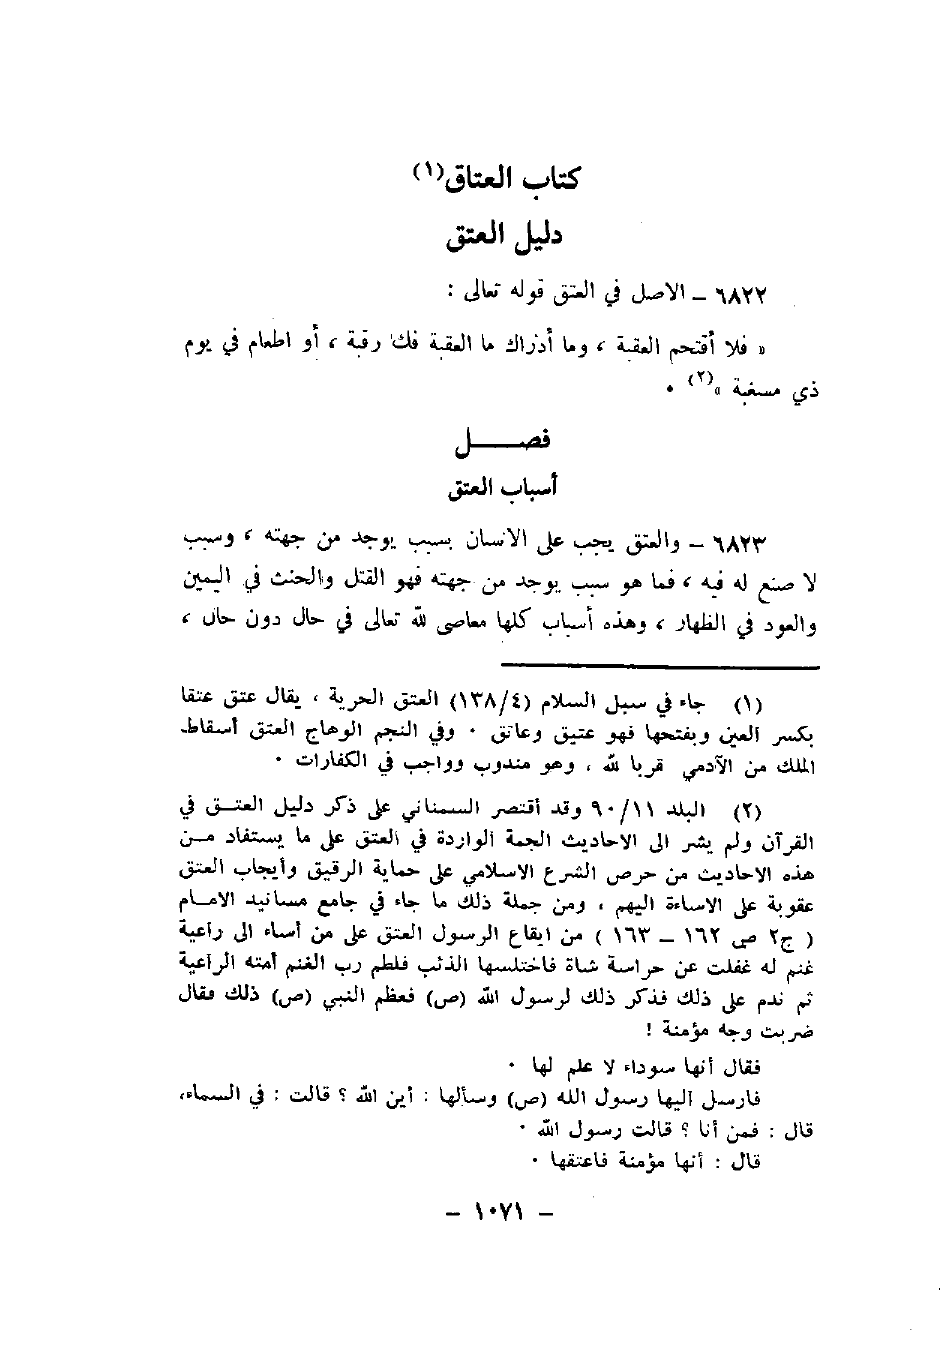 كتاب العتاق(١)
دليل العتق
٦٨٢٢ ـ الاصل في العتق قوله تعالى :
« فلا أقتحم العقبة ، وما أدراك ما العقبة فك رقبة ، أو اطعام في يوم
ذي مسغبة »(٢) ٠
فصـــــل
أسباب العتق
٦٨٢٣ ـ والعتق يجب على الانسان بسبب يوجد من جهته ، وسبب
لا صنع له فيه ، فما هو سبب يوجد من جهته فهو القتل والحنث في اليمين
والعود في الظهار ، وهذه أسباب كلها معاصى لله تعالى في حال دون حال ،
(١) جاء في سبل السلام (١٣٨/٤) العتق الحرية ، يقال عتق عتقا
بكسر العين وبفتحها فهو عتيق وعاتق ٠ وفي النجم الوهاج العتق أسقاط
الملك من الآدمي قربا لله ، وهو مندوب وواجب في الكفارات ٠
(٢) البلد ٩٠/١١ وقد أقتصر السمناني على ذكر دليل العتــق في
القرآن ولم يشر الى الاحاديث الجمة الواردة في العتق على ما يستفاد مــن
هذه الاحاديث من حرص الشرع الاسلامي على حماية الرقيق وأيجاب العتق
عقوبة على الاساءة اليهم ، ومن جملة ذلك ما جاء في جامع مسانيد الامــام
( ج٢ ص ١٦٢ ـ ١٦٣ ) من ايقاع الرسول العتق على من أساء الى راعية
غنم له غفلت عن حراسة شاة فاختلسها الذئب فلطم رب الغنم أمته الراعية
ثم ندم على ذلك فذكر ذلك لرسول الله (ص) فعظم النبي (ص) ذلك فقال
ضربت وجه مؤمنة !
فقال أنها سوداء لا علم لها ٠
فارسل اليها رسول الله (ص) وسألها : أين الله ؟ قالت : في السماء،
قال : فمن أنا ؟ قالت رسول الله ٠
قال : أنها مؤمنة فاعتقها ٠
ـ ١٠٧١ ـ